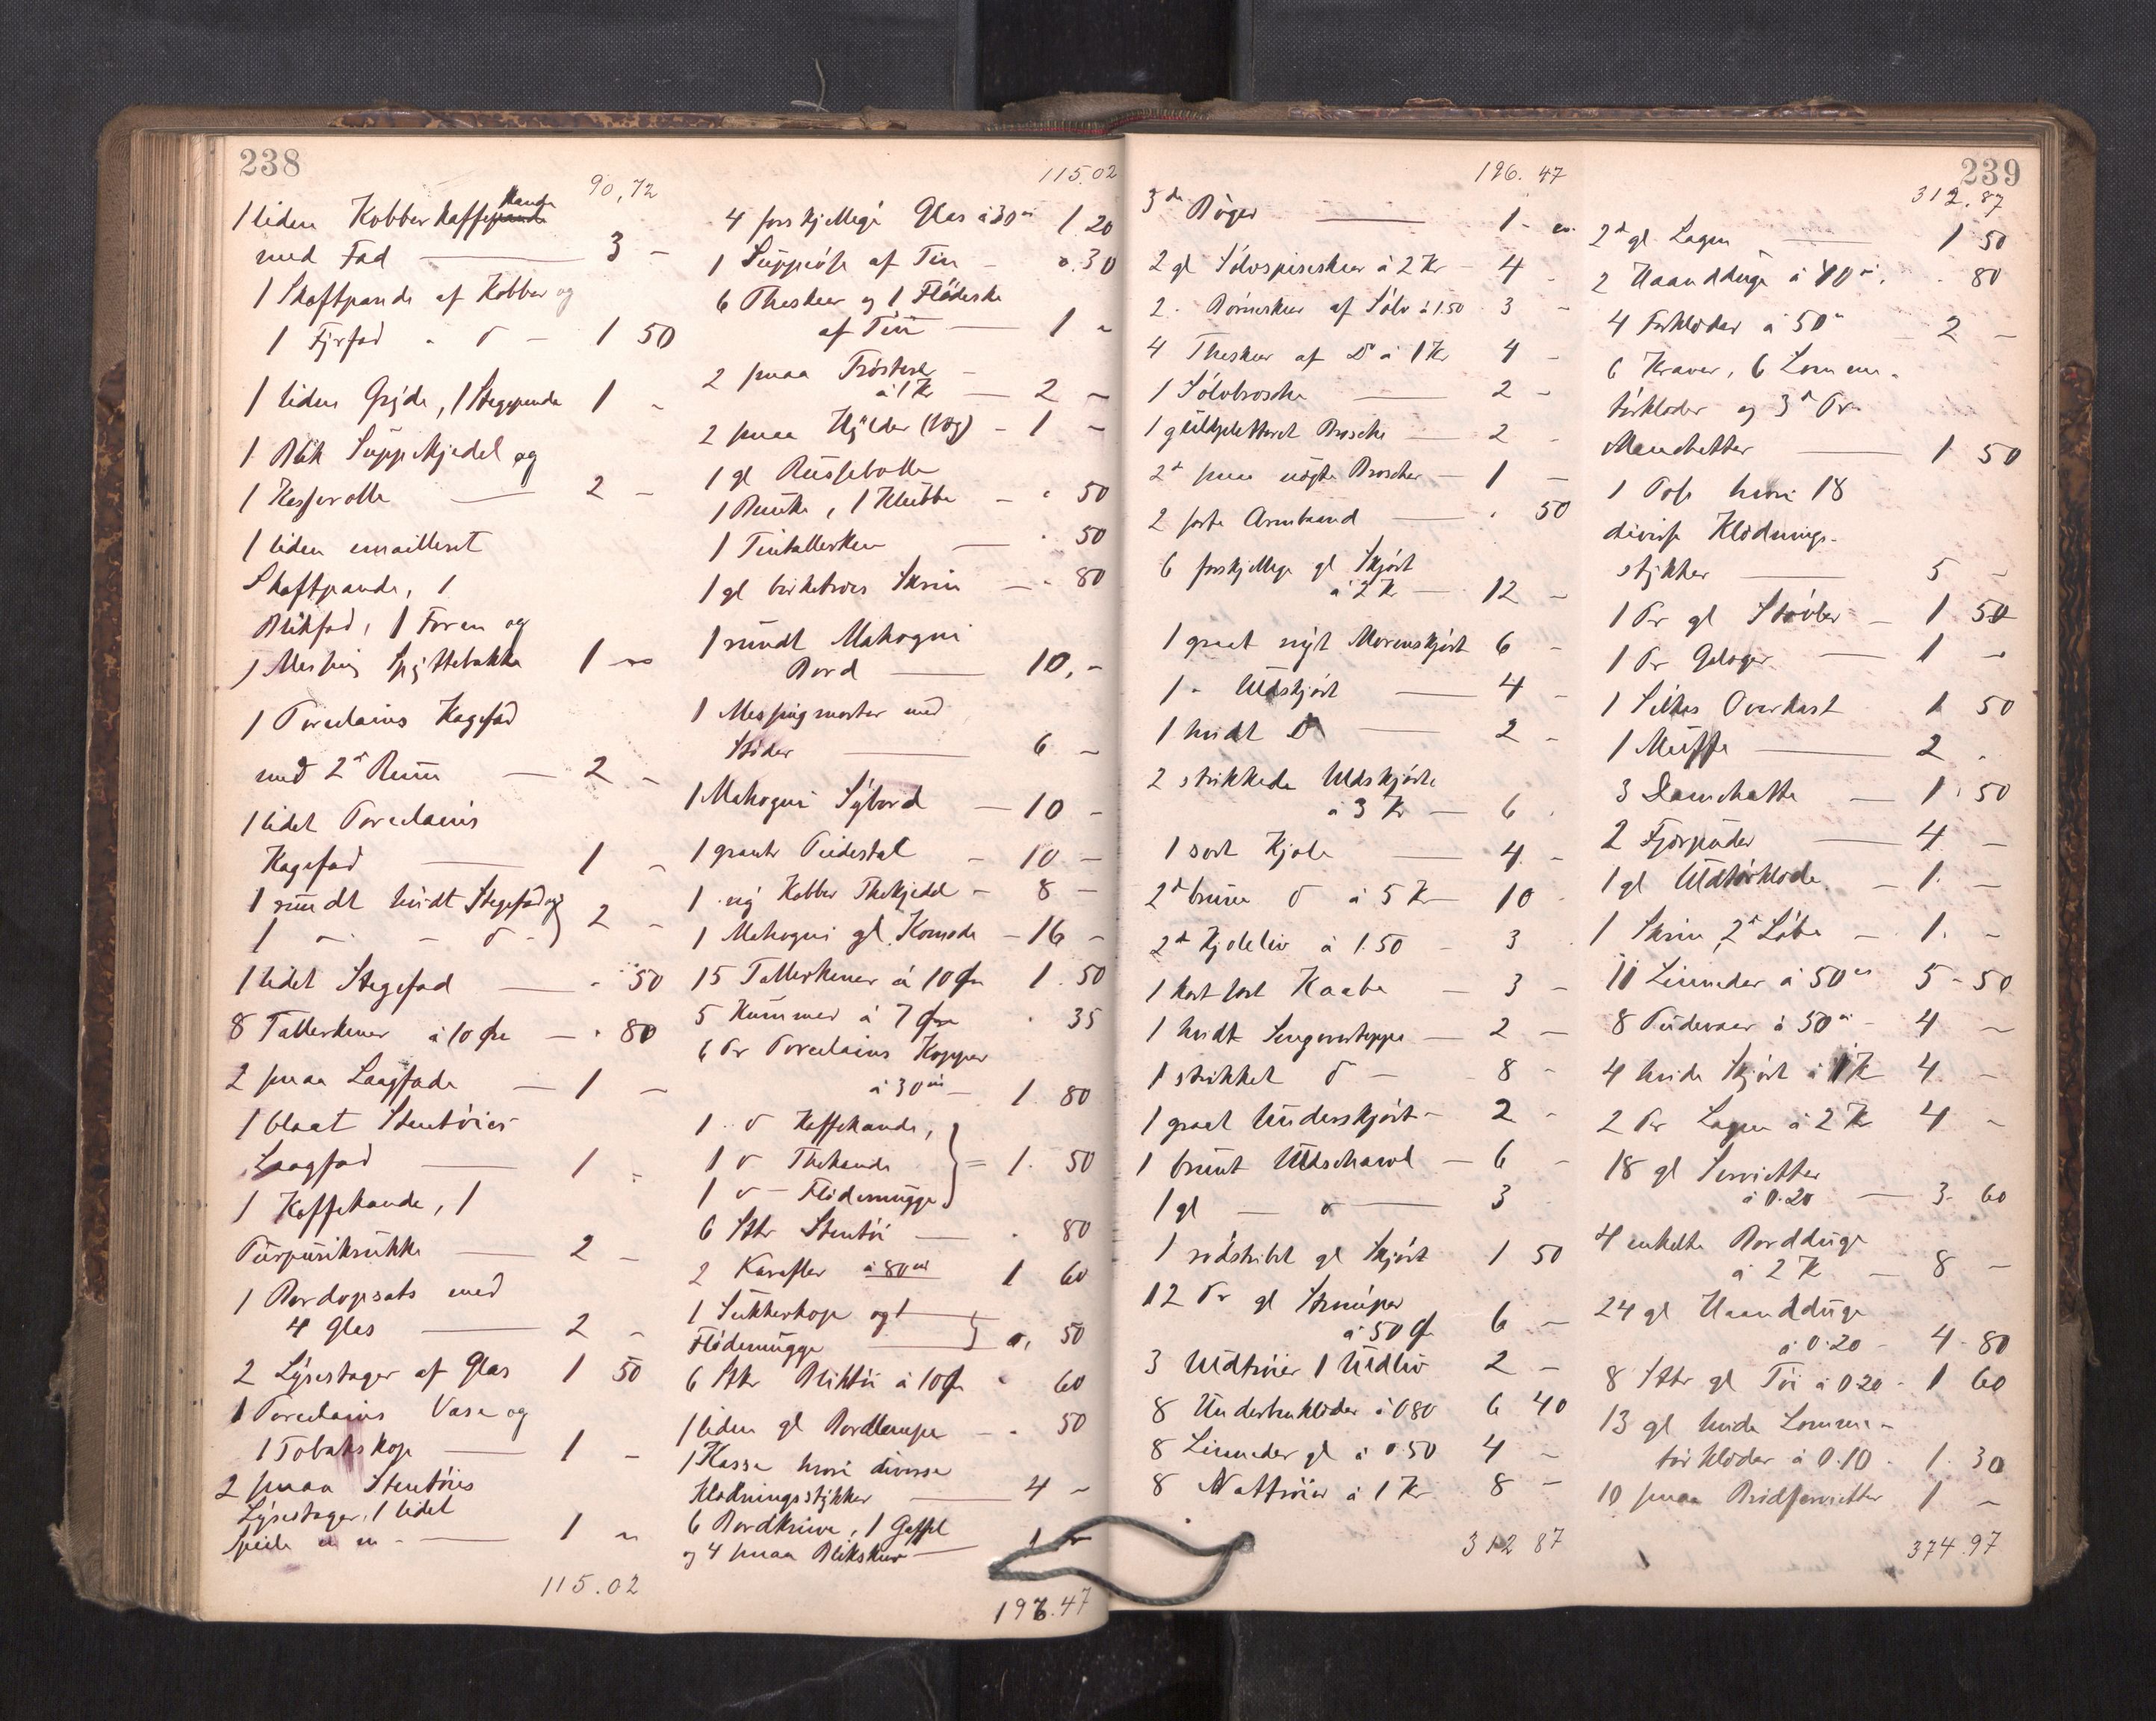 238
90,72
1 liden Kobberkaffepande kande
med Fad — 3 -
1 Skaftpande af Kobber og
1 Fyrfad " d° - 1 50
1 liden Gryde, 1 Stegepande 1 -
1 Blik Suppekjedel og
1 Kasserolle — 2 -
1 liden emailleret
Skaftpande, 1
Blikfad, 1 Form og
1 Messing Spyttebakke 1 -
1 Porcelains Kagefad
med 2d Rum — 2 -
1 lidet Porcelains
Kagefad — 1 -
1 rundt hvidt Stegefad og
1 - - d° - } 2 -
1 lidet Stegefad — " 50
8 Tallerkener à 10 Øre — " 80
2 smaa Laagfade — 1 -
1 blaat Stentøies
Laagfad — 1 -
1 Kaffekande, 1
— 2 -
1 Bordopsats med
4 Glas — 2 -
2 Lysestager af Glas 1 50
1 Porcelains Vase og
1 Tobakskop — 1 -
2 smaa Stentøies
Lysestager, 1 lidet
Speile m m. — 1 -
115.02
115.02
4 forskjellige Glas à 30 ør 1 20
1 Suppeøse af Tin - 0.30
6 Theskeer og 1 Flødeske
af Tin — 1 -
2 smaa Træstole
à 1 Kr — 2 -
2 smaa Hylder (Væg) - 1 -
1 gl Punschebolle
1 Brikke, 1 Klubbe — " 50
1 Tintallerken — " 50
1 gl birketræes Skrin — " 80
1 rundt Mahogni
Bord — 10, -
1 Messingmorter med
Støder — 6 -
1 Mahogni Sybord — 10 -
1 graat Piedestal — 10 -
1 ny Kobber Thekjedel — 8 -
1 Mahogni gl. Komode — 16 -
15 Tallerkener à 10 Øre 1.50
5 Kummer à 7 Øre . 35
6 Pr Porcelains Kopper
à 30 ør — 1. 80
1 d° Kaffekande,
1 d° Thekande } = 1. 50
1 d° - Flødemugge
6 Stkr Stentøi — . 80
2 Karafler à 80 ør 1 60
1 Sukkerkop og 1
Flødemugge — } 0, 50
6 Stkr Bliktøi à 10 Øre " 60
1 liden gl Bordlampe — " 50
1 Kasse hvori diverse
Klædningsstykker — 4 -
6 Bordknive, 1 Gaffel
og 4 smaa Blikskeer — 1 -
196.47
239
196.47
3 de Bøger — 1 -
2 gl Sølvspiseskeer à 2 Kr - 4 -
2. Børneskeer af Sølv à 1.50 3 -
4 Theskeer af D° à 1 Kr 4 -
1 Sølvbrosche — 2 -
1 guldpletteret Brosche — 2 -
2d smaa uægte Broscher — 1 -
2 sorte Armbaand — . 50
6 forskjellige gl Skjørt
à 2 Kr — 12 -
1 graat nyt Morenskjørt 6 -
1 " Uldskjørt — 4 -
1 hvidt D° — 2 -
2 strikkede Uldskjørte
à 3 Kr — 6 .
1 sort Kjole — 4 -
2d brune d° à 5 Kr — 10 -
2d Kjoleliv à 1.50 - 3 -
1 kort sort Kaabe — 3 -
1 hvidt Sengeteppe — 2 -
1 strikket d° - 8 -
1 graat Underskjørt — 2 -
1 brunt Uldschawl — 6 -
1 gl — d° — 3
1 rødstribt gl Skjørt 1 50
12 Pr gl Strømper
à 50 Ø 6 -
3 Uldtrøier 1 Uldliv 2 -
8 Underbenklæder à 0.80 6 40
8 Linneder gl à 0.50 4 -
8 Nattrøier à 1 Kr. 8 -
312 87
312.87
2d gl. Lagen — 1 50
2 Haandduge à 40 ør. . 80
4 Forklæder à 50 ør 2 -
6 Kraver, 6 Lomme-
tørklæder og 3d Pr.
Manchetter — 1 50
1 Pose hvori 18
diverse Klædnings-
stykker — 5 -
1 Pr gl Støvler — 1 50
1 Pr Galoger — 1 -
1 Silkes Overkast 1 50
1 Muffe — 2 .
3 Damehatte — 1. 50
2 Fjørpuder — 4 -
1 gl Uldtørklæde — 1. -
1 Skrin, 2d Løbe — 1. -
11 Linneder à 50 ør 5 - 50
8 Pudevaar à 50 ør - 4 -
4 hvide Skjørt à 1 Kr 4 -
2 Pr Lagen à 2 Kr 4 -
18 gl Servietter
à 0.20 — 3. 60
4 enkelte Bordduge
à 2 Kr — 8 -
24 gl Haandduge
à 0.20 - 4. 80
8 Stkr gl Tøi à 0.20 - 1 60
13 gl hvide Lomme-
tørklæder à 0.10. 1. 30
10 smaa Brødservietter 1 -
374.97